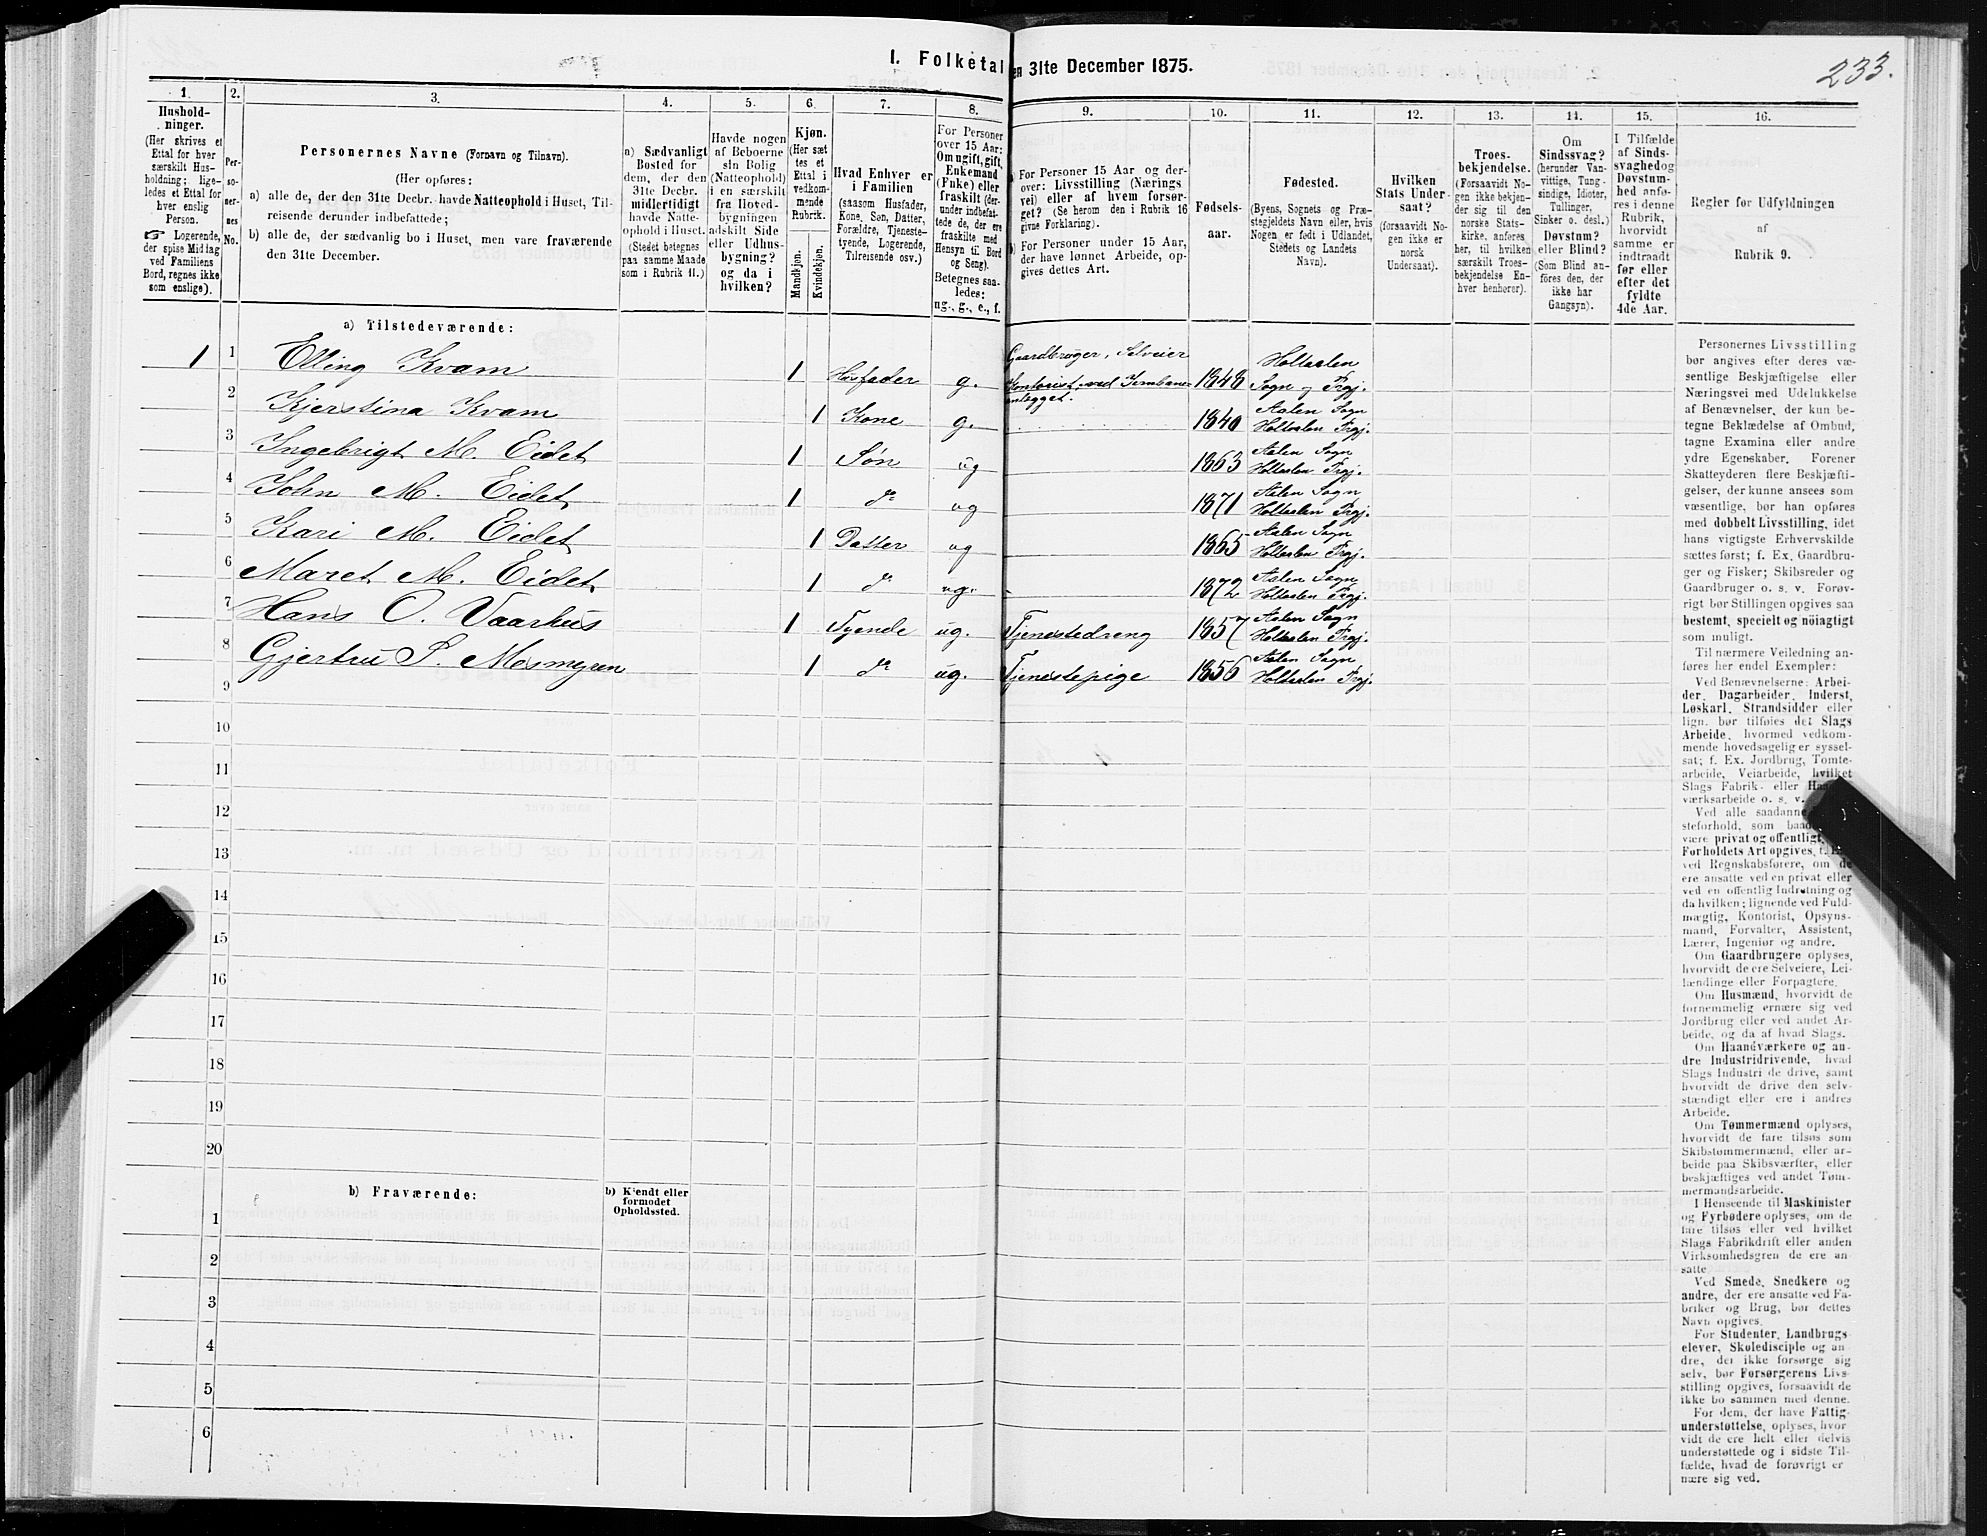 I. Folketal den 31te December 1875.
233.
1. 2. 3. 4. 5. 6. 7. 8. 9. 10. 11. 12. 13. 14. 15. 16.
Hushold-
ninger.
(Her skrives et
Ettal for hver
særskilt Hus-
holdning; lige-
ledes et Ettal for
hver enslig
Person.
☞ Logerende,
der spise Middag
ved Familiens
Bord, regnes ikke
som enslige).
Per-
so-
ner-
nes
No.
Personernes Navne (Fornavn og Tilnavn).
(Her opføres:
a) alle de, der den 31te Decbr. havde Natteophold i Huset, Til-
reisende derunder indbefattede;
b) alle de, der sædvanlig bo i Huset, men vare fraværende
den 31te December.
a) Sædvanligt
Bosted for
dem, der den
31te Decbr.
midlertidigt
havde Natte-
ophold i Huset.
(Stedet betegnes
paa samme Maade
som i Rubrik 11.)
Havde nogen
af Beboerne
sin Bolig
(Natteophold)
i en særskilt
fra Hoved-
bygningen
adskilt Side
eller Udhus-
bygning?
og da i
hvilken?
Kjøn.
(Her sæt
tes et
Ettal i
vedkom-
mende
Rubrik.
Mandkjøn.
Kvindekjøn.
Hvad Enhver er
i Familien
(saasom Husfader,
Kone, Søn, Datter,
Forældre, Tjeneste-
tyende, Logerende,
Tilreisende osv.)
For Personer
over 15 Aar:
Om ugift, gift,
Enkemand
(Enke) eller
fraskilt (der-
under indbefat-
tede de, der ere
fraskilte med
Hensyn til Bord
og Seng).
Betegnes saa-
ledes:
ug., g., e., f.
a) For Personer 15 Aar og der-
over: Livsstilling (Nærings
vei) eller af hvem forsør-
get? (Se herom den i Rubrik 16
givne Forklaring).
b) For Personer under 15 Aar,
der have lønnet Arbeide, op-
gives dettes Art.
Fødsels-
aar.
Fødested.
(Byens, Sognets og Præ-
stegjeldets Navn eller, hvis
Nogen er født i Udlandet,
Stedets og Landets
Navn).
Hvilken
Stats Under-
saat?
(forsaavidt No-
gen ikke er
norsk
Undersaat).
Troes-
bekjendelse.
(Forsaavidt No-
gen ikke bekjen-
der sig til den
norske Stats-
kirke, anføres
her, til hvilken
særskilt Troes-
bekjendelse En-
hver henhører).
Om
Sindssvag?
(herunder Van-
vittige, Tung-
sindige, Idioter,
Tullinger,
Sinker o. desl.)
Døvstum?
eller Blind?
(Som Blind an-
føres den, der
ikke har
Gangsyn).
I Tilfælde
af Sinds-
svaghed og
Døvstum-
hed anfø-
res i denne
Rubrik,
hvorvidt
samme er
indtraadt
før eller
efter det
fyldte
4de Aar.
Regler for Udfyldningen
af
Rubrik 9.
a) Tilstedeværende:
1 1 Elling Kvam 1 Husfader g. Gaardbruger, Selveier Kontorist ved Jernbane anlægget. 1848 Holtaalen Sogn og Prgj.
2 Kjerstina Kvam 1 Kone g. 1840 Aalen Sogn Holtaalen Prgj.
3 Ingebrigt M. Eidet 1 Søn ug 1863 Aalen Sogn Holtaalen Prgj.
4 John M. Eidet 1 do ug 1871 Aalen Sogn Holtaalen Prgj.
5 Kari M. Eidet 1 Datter ug 1865 Aalen Sogn Holtaalen Prgj.
6 Maret M. Eidet 1 do ug. 1872 Aalen Sogn Holtaalen Prgj.
7 Hans O. Vaarhus 1 Tyende ug. Tjenestedreng 1857 Aalen Sogn Holtaalen Prgj.
8 Gjertru P. Mosmyren 1 do ug. Tjenestepige 1856 Aalen Sogn Holtaalen Prgj.
9
10
11
12
13
14
15
16
17
18
19
20
b) Fraværende:
b) Kjendt eller
formodet
Opholdssted.
1
2
3
4
5
6
Personernes Livsstilling
bør angives efter deres væ-
sentlige Beskjæftigelse eller
Næringsvei med Udelukkelse
af Benævnelser, der kun be-
tegne Beklædelse af Ombud,
tagne Examina eller andre
ydre Egenskaber. Forener
Skatteyderen flere Beskjæfti-
gelser, der kunne ansees som
væsentlige, bør han opføres
med dobbelt Livsstilling, idet
hans vigtigste Erhvervskilde
sættes først; f. Ex. Gaardbru-
ger og Fisker; Skibsreder og
Gaardbruger o. s. v. Forøv-
rigt bør Stillingen opgives saa
bestemt, specielt og nøiagtigt
som muligt.
Til nærmere Veiledning an-
føres her endel Exempler:
Ved Benævnelserne: Arbei-
der, Dagarbeider, Inderst,
Løskarl, Strandsidder eller
lign. bør tilføies det Slags
Arbeide, hvormed vedkom-
mende hovedsagelig er syssel-
sat; f. Ex. Jordbrug, Tomte-
arbeide, Veiarbeide, hvilket
Slags Fabrik- eller Haand-
værksarbeide o. s. v.
Ved alle saadanne
steforhold, som baade
være privat og offentligt,
Forholdets Art opgives, f. Ex.
ved Regnskabsførere, om de
ere ansatte ved en privat eller
ved en offentlig Indretning og
da hvilken; lignende ved Fuld-
mægtig, Kontorist, Opsyns-
mand, Forvalter, Assistent,
Lærer, Ingeniør og andre.
Om Gaardbrugere oplyses,
hvorvidt de ere Selveiere, Lei-
lændinge eller Forpagtere.
Om Husmænd, hvorvidt de
fornemmelig ernære sig ved
Jordbrug eller ved andet Ar-
beide, og da af hvad Slags.
Om Haandværkere og an-
dre Industridrivende, hvad
Slags Industri de drive, samt
hvorvidt de drive den selv-
stændigt eller ere i andres
Arbeide.
Om Tømmermænd oplyses,
hvorvidt de fare tilsøs som
Skibstømmermænd, eller ar-
beide paa Skibsværfter, eller
beskjæftiges ved andet Tøm-
mermandsarbeide.
I Henseende til Maskinister
og Fyrbødere oplyses, om de
fare tilsøs eller ved hvilket
Slags Fabrikdrift eller anden
Virksomhedsgren de ere an-
satte.
Ved Smede, Snedkere og
andre, der ere ansatte ved Fa-
briker og Brug, bør dettes
Navn opgives.
For Studenter, Landbrugs-
elever, Skoledisciple og an-
dre, der ikke forsørge sig
selv, bør Forsørgerens Livs-
stilling opgives, forsaavidt de
ikke bo sammen med denne.
For dem, der have Fattig-
understøttelse, oplyses, hvor-
vidt de ere helt eller delvis
understøttede og i sidste Til-
fælde, hvad de forøvrigt er
nære sig ved.